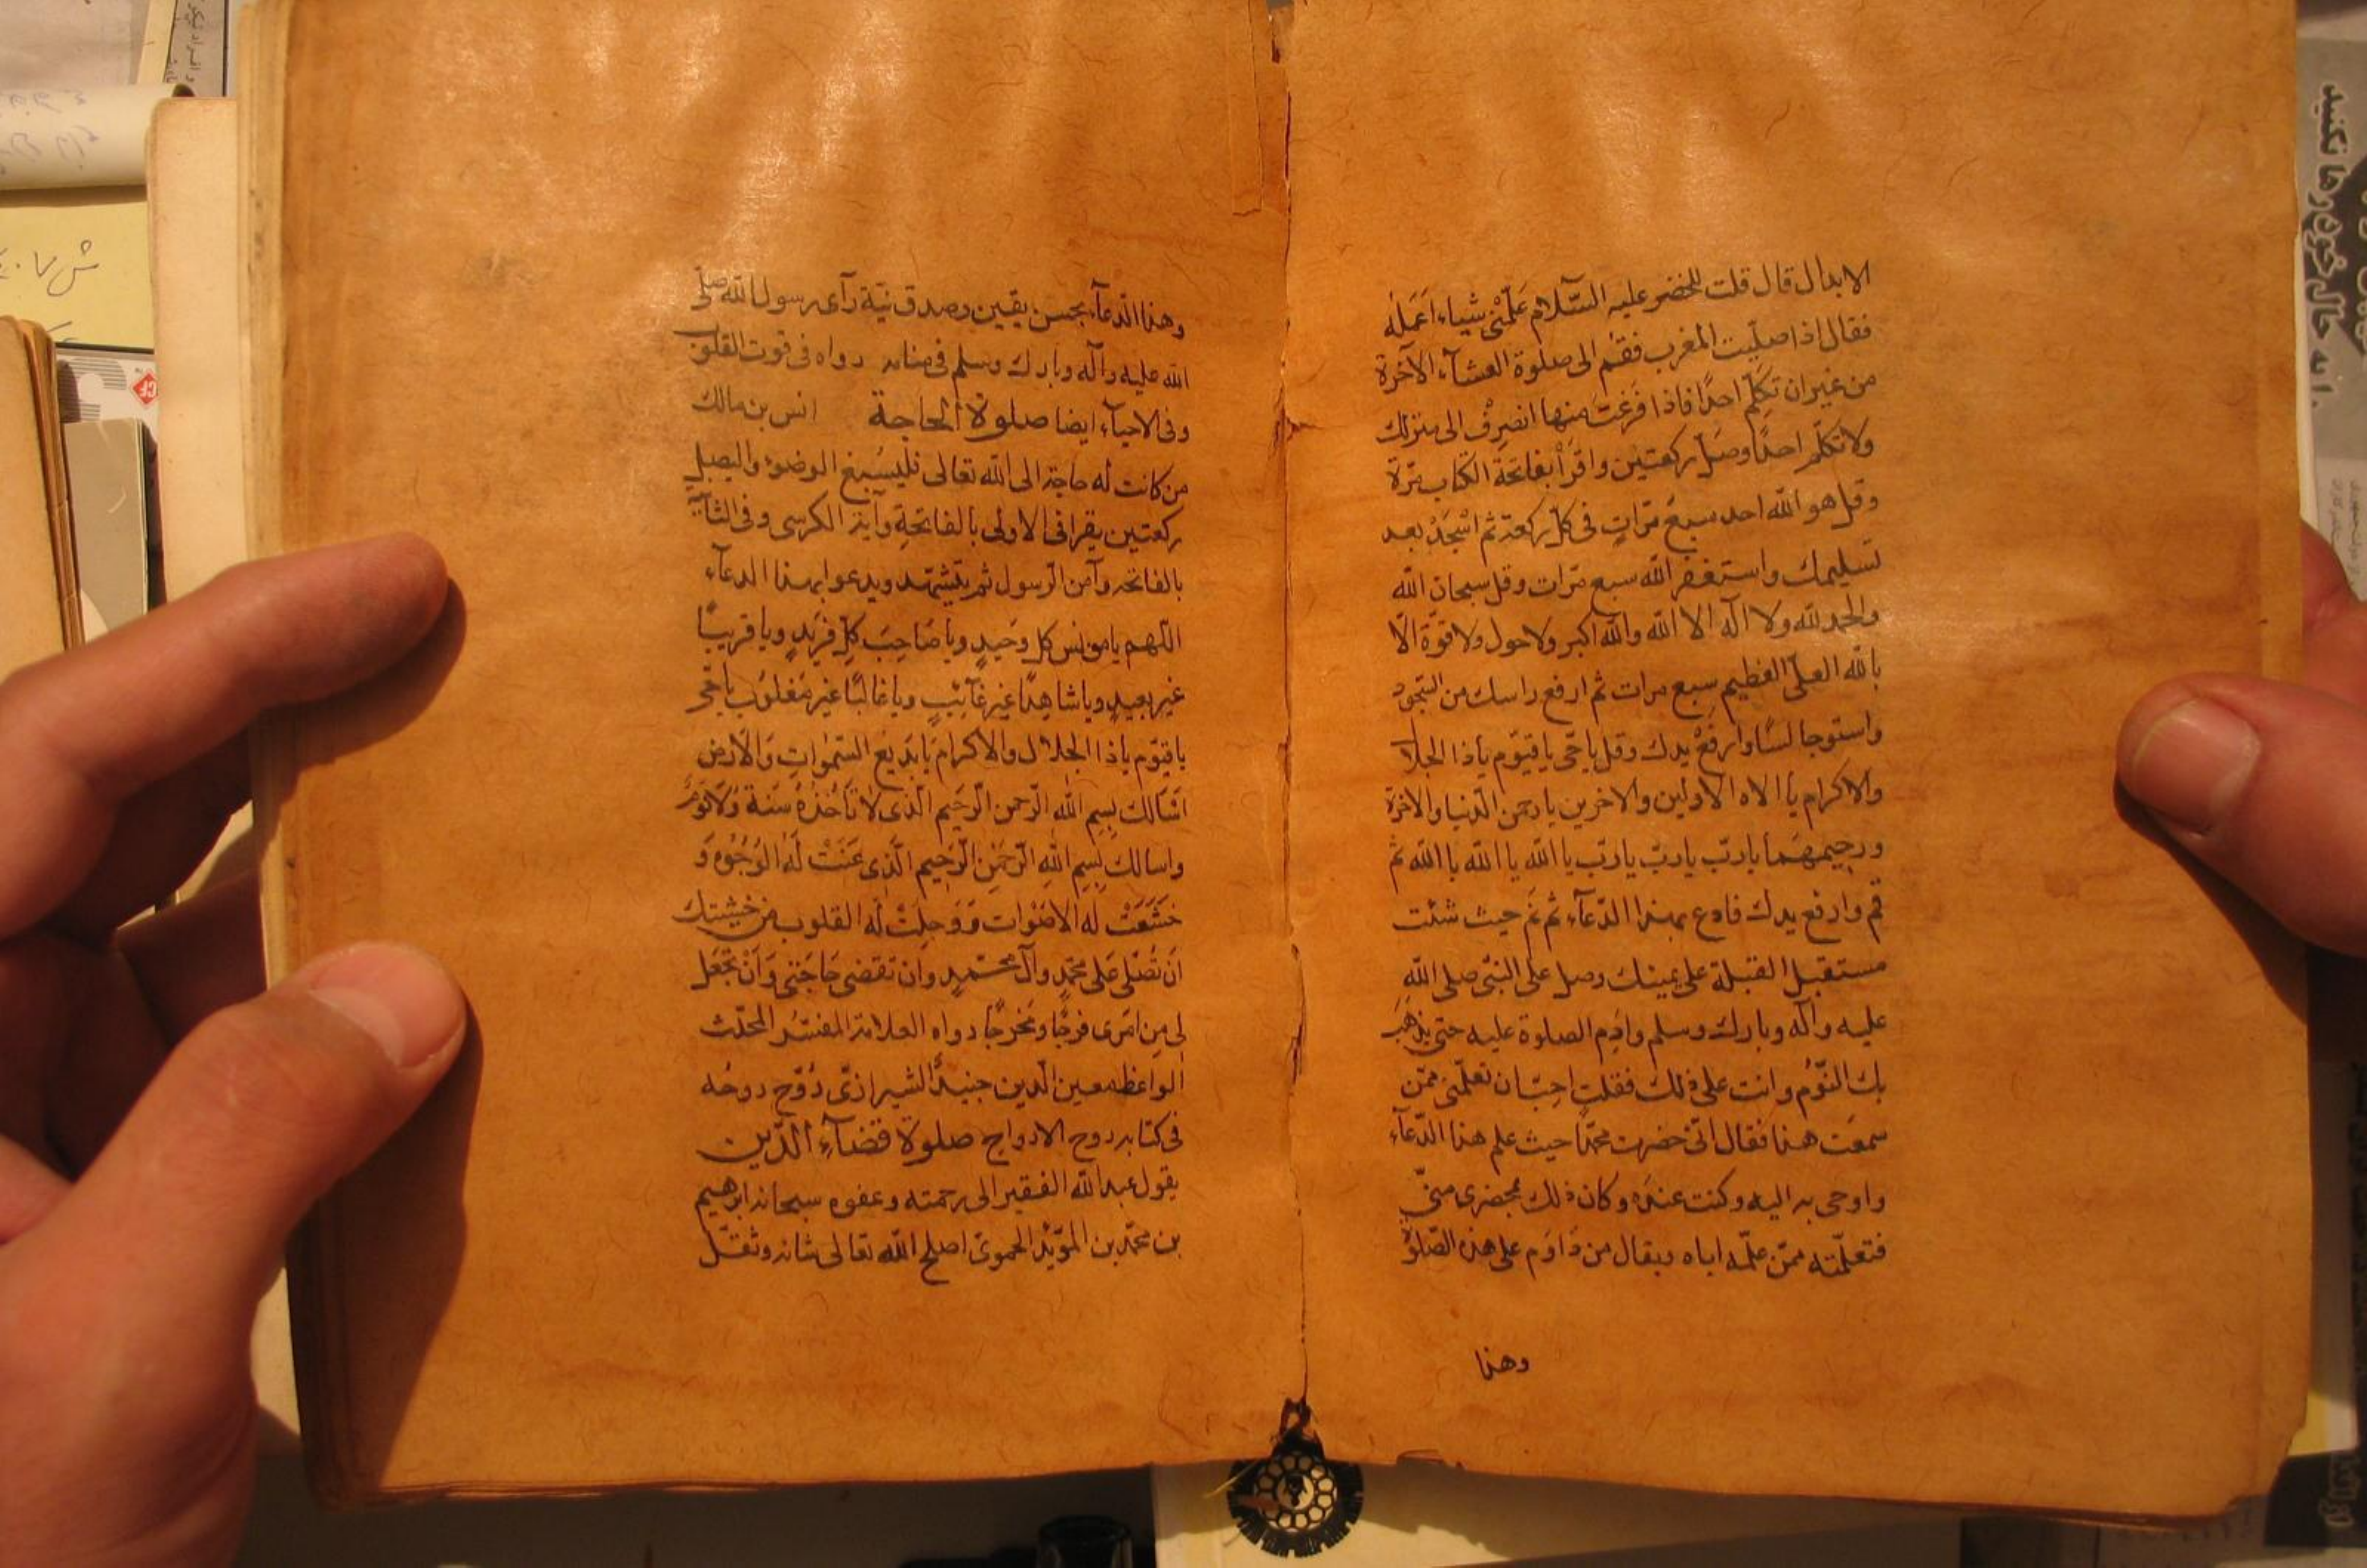 الابدال قال قلت للخضر عليه السّلام عَلِّمْنى شياء اَعمَلهُ
فقال اذا صلّيت المغرب فقُم الى صلوة العشآء الآخرة
من غير ان تكلّم احدًا فاذا فَرَغتَ منها انصرِفْ الى منزلك
ولا تكلّم احدًا وصَلّ ركعتين واقرَأ بفاتحة الكتاب مرّة
وقل هو الله احد سبعَ مرّاتٍ فى كلّ ركعة ثم اسْجُدْ بعد
تسليمك واستغفر الله سبع مرّات وقل سبحان الله
والحمد لله ولا اله الا الله والله اكبر ولا حول ولا قوّة الّا
بالله العلىّ العظيم سبع مرات ثم ارفع راسك من السّجود
واستو جالسًا وارفعْ يدك وقل ياحّى ياقيّوم ياذا الجلا
والاكرام يا الاه الاوّلين والاخرين يارحمن الدّنيا والاخرة
ورحِيمَهمَا ياربّ ياربّ ياربّ يا الله يا الله يا الله ثم
قم وارفع يدك فادع بهذا الدّعآء ثم نَم حيث شئت
مستقبل القبلة على يمينك وصل على النبىّ صلى الله
عليه وآله وبارك وسلم وادِم الصلوة عليه حتى يذهَبَ
بك النّوْمُ وانت على ذلك فقلت احِبّ ان تعلّمنى ممّن
سمعَت هذا فقال انّى حضرت محمّدًا حيث علم هذا الدّعآء
واوحى به اليه وكنت عندَه وكان ذلك بمحضرى منّى
فتعلّمته ممّن علّمه اياه ويقال من دَاوَم على هذه الصّلوة
وهذا
وهذا الدّعآء بحسن يقين وصدق نيّة رآى رسول الله صلّى
الله عليه وآله وبارك وسلم فى منامه رواه فى قوت القلوب
وفى الاحيآء ايضا صلوة الحاجة انس بن مالك
من كانت له حاجة الى الله تعالى فليُسبغ الوضوء واليصل
ركعتين يقرا فى الاولى بالفاتحةِ وآية الكرسى وفى الثانية
بالفاتحه وآمن الرّسول ثم يتشّهد ويدعوا بهذا الدعآء
اللّهم يا مونس كل وَحيدٍ ويا صَاحِبَ كلِّ فَرِيدٍ ويا قريبًا
غير بعيدٍ ويا شاهِدًا غيرَ غآئِبٍ ويا غالبًا غير مَغلوُب ياحّى
ياقيّوم ياذا الجلال والاكرام يَا بَديع السّمٰواتِ وَالاَرض
اَسَالك بِسِم الله الرّحمن الرّحيم الّذى لا تَأخُذُهُ سَنة وَلَا نَوْمٌ
واسالك بِسِم اللهِ الرّحمٰنِ الرّحيم الّذى عَنَتْ لَهُ الوُجُوه وَ
خَشَعَتْ له الاصَوْات وَوَجِلَتْ لَه القلوب مِن خَشيتك
اَن تُصَلّى عَلى محمّدٍ وآل محمّدٍ وان تقضى حَاجَتى وَانْ تَجْعَل
لى مِن امَرى فرجًا ومَخرجًا رواه العلامة المفسّر المحدّث
الواعظ معين الّدين جنيد الشيرازىّ رُوّح روحُه
فى كتابه روح الارواح صلوة قضآءِ الدّين
يقول عبد الله الفقير الى رحمته وعفوه سبحانه ابرهيم
بن محمّد بن المؤيّد الحموىّ اصلح الله تعالى شانه وثقّل